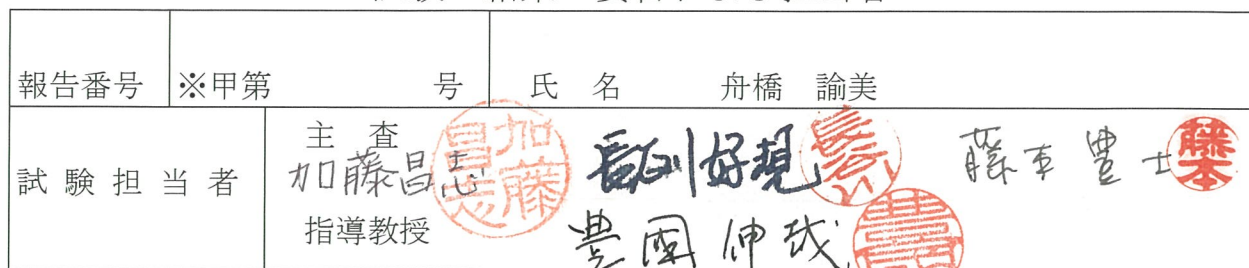 報告番号 ※甲第 号 氏 名 舟橋 諭美
主 査
試 験 担 当 者 加藤昌志 加藤昌志 長谷川好規 藤本豊士 藤本
指導教授
豊國伸哉